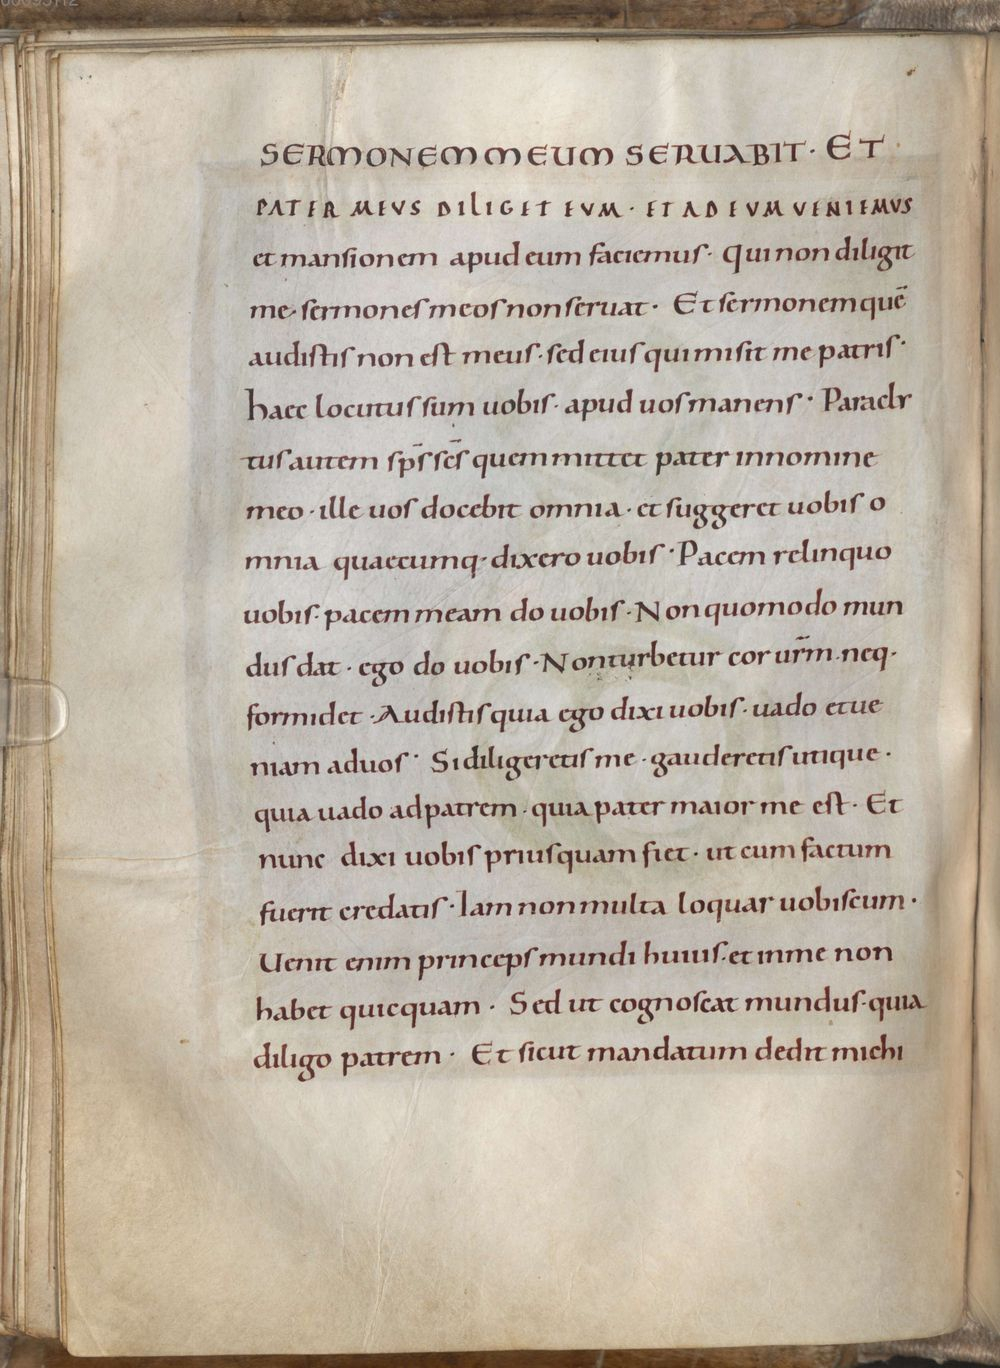 SERMONEM MEUM SERUABIT · ET
PATER MEVS DILIGET EVM · ET AD EVM VENIEMVS
et mansionem apud eum faciemus · Qui non diligit
me · sermones meos non seruat · Et sermonem quē
audistis non est meus · sed eius qui misit me patris ·
haec locutus sum uobis · apud uos manens · Paracly
tus autem sp̄s sc̄s quem mittet pater in nomine
meo · ille uos docebit omnia · et suggeret uobis o
mnia quaecumq· dixero uobis · Pacem relinquo
uobis · pacem meam do uobis · Non quomodo mun
dus dat · ego do uobis · Non turbetur cor ur̄m · neq·
formidet · Audistis quia ego dixi uobis · uado et ue
niam ad uos · Si diligeretis me · gauderetis utique ·
quia uado ad patrem · quia pater maior me est · Et
nunc dixi uobis priusquam fiet · ut cum factum
fuerit credatis · Iam non multa loquar uobiscum ·
Uenit enim princeps mundi huius · et in me non
habet quicquam · Sed ut cognoscat mundus · quia
diligo patrem · Et sicut mandatum dedit michi